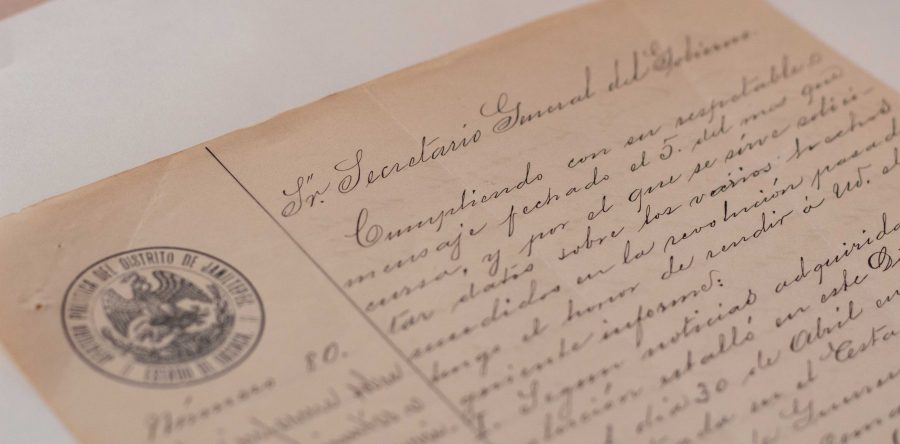 Sr. Secretario General del Gobierno.
Cumpliendo con su respetable
mensaje fechado el 5. del mes que
cursa, y por el que se sirve solici-
tar datos sobre los varios hechos
sucedidos en la revolución pasada
tengo el honor de rendir á Ud. el
guiente informe:
I. Segun noticias adquirida
lución estalló en este
dia 30 de Abril en
en el
JEFATURA POLITICA DEL DISTRITO DE JAMILTEPEC
ESTADO DE OAXACA
Número 80.